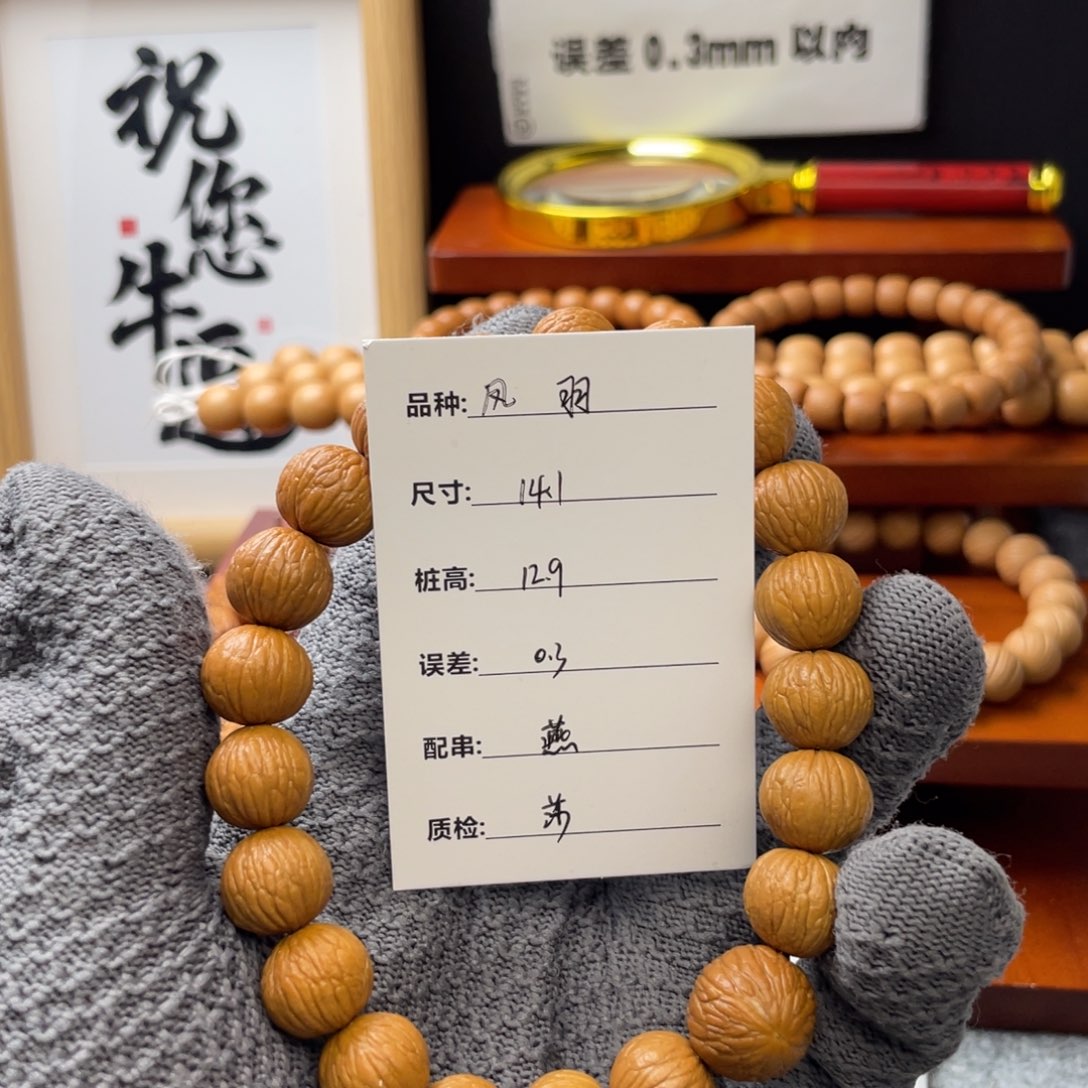 祝您
牛运
误差 0.3mm 以内
品种: 凤 羽
尺寸: 14.1
桩高: 12.9
误差: 0.3
配串: 燕
质检: